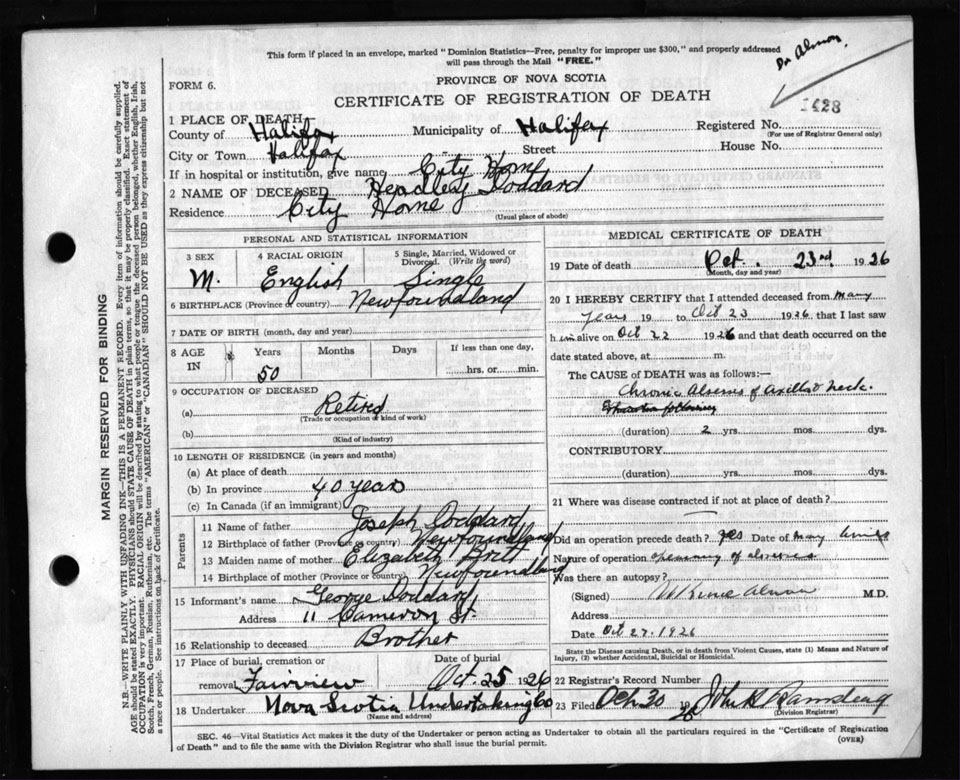 Dr Almon
This form if placed in an envelope, marked "Dominion Statistics—Free, penalty for improper use $300," and properly addressed
will pass through the Mail "FREE."
FORM 6.
PROVINCE OF NOVA SCOTIA
CERTIFICATE OF REGISTRATION OF DEATH
1628
1 PLACE OF DEATH
County of Halifax Municipality of Halifax Registered No.
(For use of Registrar General only)
City or Town Halifax Street House No.
If in hospital or institution, give name City Home
2 NAME OF DECEASED Headley Doddard
Residence City Home
(Usual place of abode)
PERSONAL AND STATISTICAL INFORMATION
3 SEX 4 RACIAL ORIGIN 5 Single, Married, Widowed or
Divorced. (Write the word)
M. English Single
6 BIRTHPLACE (Province or country) Newfoundland
7 DATE OF BIRTH (month, day and year)
8 AGE IN Years Months Days If less than one day,
50 hrs. or min.
9 OCCUPATION OF DECEASED
(a) Retired
(Trade or occupation or kind of work)
(b)
(Kind of industry)
10 LENGTH OF RESIDENCE (in years and months)
(a) At place of death
(b) In province 40 years
(c) In Canada (if an immigrant)
Parents
11 Name of father Joseph Doddard
12 Birthplace of father (Province or country) Newfoundland
13 Maiden name of mother Elizabeth
14 Birthplace of mother (Province or country) Newfoundland
15 Informant's name George Doddard
Address 11 Cameron St.
16 Relationship to deceased Brother
17 Place of burial, cremation or Date of burial
removal Fairview Oct. 25 1926
18 Undertaker Nova Scotia Undertaking Co
(Name and address)
MEDICAL CERTIFICATE OF DEATH
19 Date of death Oct. 23rd 1926
(Month, day and year)
20 I HEREBY CERTIFY that I attended deceased from many
years 19 to Oct 23 1926, that I last saw
h im alive on Oct 22 1926 and that death occurred on the
date stated above, at m.
The CAUSE of DEATH was as follows:—
Chronic Abscess of axilla & neck.
(duration) 2 yrs. mos. dys.
CONTRIBUTORY
(duration) yrs. mos. dys.
21 Where was disease contracted if not at place of death?
Did an operation precede death? yes Date of many times
Nature of operation opening of abscess
Was there an autopsy?
(Signed) Almon M.D.
Address
Date Oct 27. 1926
State the Disease causing Death, or in death from Violent Causes, state (1) Means and Nature of
Injury, (2) whether Accidental, Suicidal or Homicidal.
22 Registrar's Record Number
23 Filed Oct 30 1926 John A
(Division Registrar)
SEC. 46—Vital Statistics Act makes it the duty of the Undertaker or person acting as Undertaker to obtain all the particulars required in the "Certificate of Registration
of Death" and to file the same with the Division Registrar who shall issue the burial permit. (OVER)
MARGIN RESERVED FOR BINDING
N.B.—WRITE PLAINLY WITH UNFADING INK—THIS IS A PERMANENT RECORD. Every item of information should be carefully supplied.
AGE should be stated EXACTLY. PHYSICIANS should STATE CAUSE OF DEATH in plain terms, so that it may be properly classified. Exact statement of
OCCUPATION is very important. RACIAL ORIGIN will be described by stating to what people or tongue the deceased person belonged, whether English, Irish,
Scotch, French, German, Russian, Ruthenian, etc. The terms "AMERICAN" or "CANADIAN" SHOULD NOT BE USED as they express citizenship but not
a race or people. See instructions on back of Certificate.